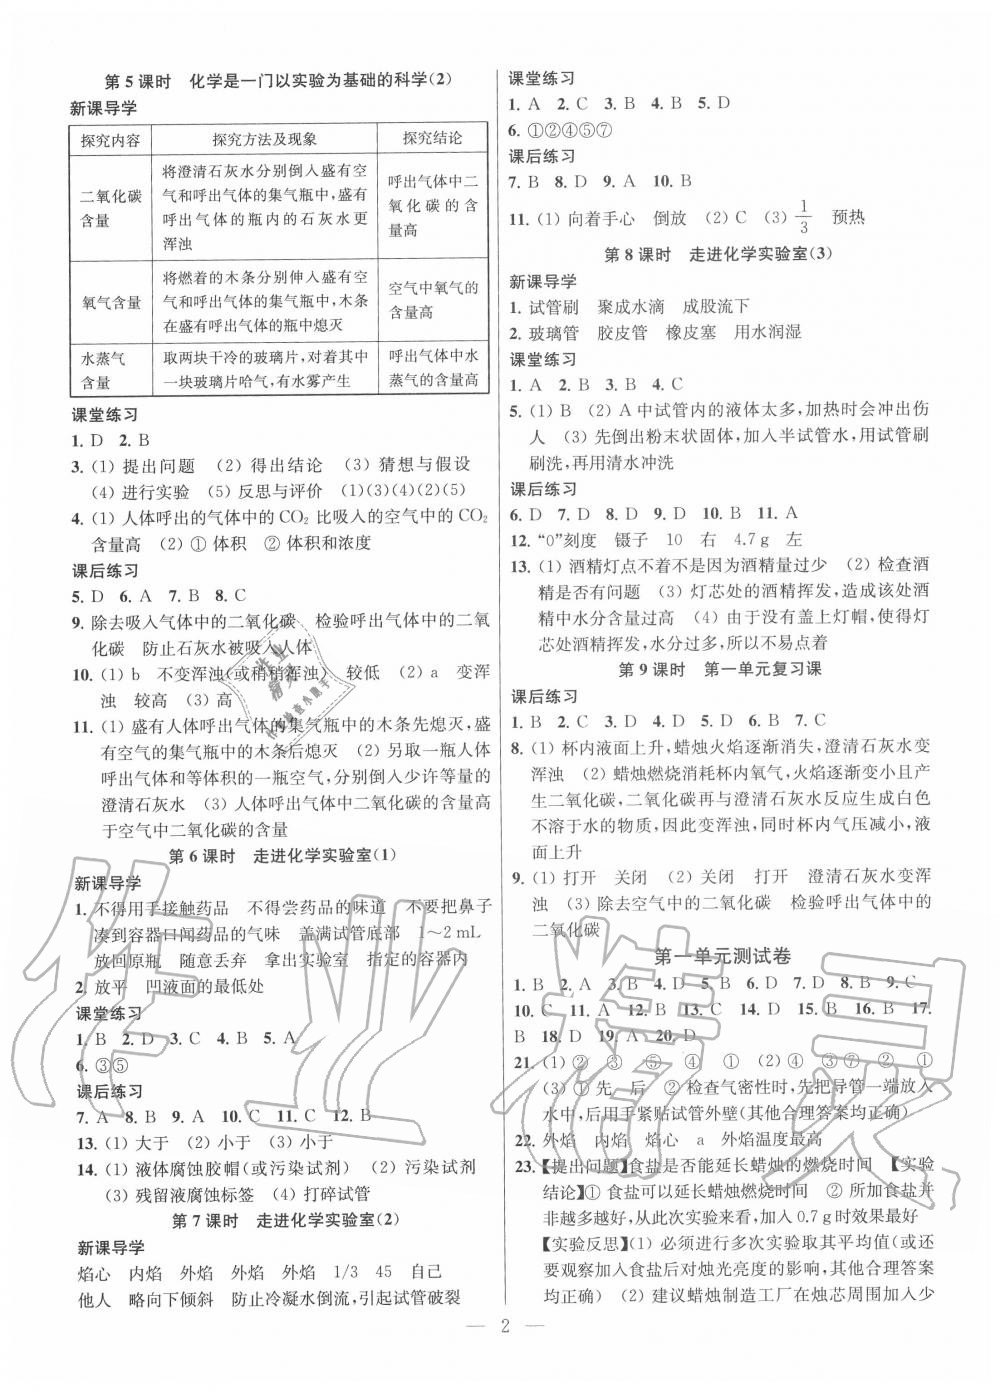 第5课时　化学是一门以实验为基础的科学(2)
新课导学
探究内容　探究方法及现象　探究结论
二氧化碳含量　将澄清石灰水分别倒入盛有空气和呼出气体的集气瓶中,盛有呼出气体的瓶内的石灰水更浑浊　呼出气体中二氧化碳的含量高
氧气含量　将燃着的木条分别伸入盛有空气和呼出气体的集气瓶中,木条在盛有呼出气体的瓶中熄灭　空气中氧气的含量高
水蒸气含量　取两块干冷的玻璃片,对着其中一块玻璃片哈气,有水雾产生　呼出气体中水蒸气的含量高
课堂练习
1. D　2. B
3. (1) 提出问题　(2) 得出结论　(3) 猜想与假设
(4) 进行实验　(5) 反思与评价　(1)(3)(4)(2)(5)
4. (1) 人体呼出的气体中的CO₂比吸入的空气中的CO₂
含量高　(2) ① 体积　② 体积和浓度
课后练习
5. D　6. A　7. B　8. C
9. 除去吸入气体中的二氧化碳　检验呼出气体中的二氧
化碳　防止石灰水被吸入人体
10. (1) b　不变浑浊(或稍稍浑浊)　较低　(2) a　变浑
浊　较高　(3) 高
11. (1) 盛有人体呼出气体的集气瓶中的木条先熄灭,盛
有空气的集气瓶中的木条后熄灭　(2) 另取一瓶人体
呼出气体和等体积的一瓶空气,分别倒入少许等量的
澄清石灰水　(3) 人体呼出气体中二氧化碳的含量高
于空气中二氧化碳的含量
第6课时　走进化学实验室(1)
新课导学
1. 不得用手接触药品　不得尝药品的味道　不要把鼻子
凑到容器口闻药品的气味　盖满试管底部　1～2 mL
放回原瓶　随意丢弃　拿出实验室　指定的容器内
2. 放平　凹液面的最低处
课堂练习
1. B　2. D　3. C　4. B　5. A
6. ③⑤
课后练习
7. A　8. B　9. A　10. C　11. C　12. B
13. (1) 大于　(2) 小于　(3) 小于
14. (1) 液体腐蚀胶帽(或污染试剂)　(2) 污染试剂
(3) 残留液腐蚀标签　(4) 打碎试管
第7课时　走进化学实验室(2)
新课导学
焰心　内焰　外焰　外焰　外焰　1/3　45　自己
他人　略向下倾斜　防止冷凝水倒流,引起试管破裂
课堂练习
1. A　2. C　3. B　4. B　5. D
6. ①②④⑤⑦
课后练习
7. B　8. D　9. A　10. B
11. (1) 向着手心　倒放　(2) C　(3) 1/3　预热
第8课时　走进化学实验室(3)
新课导学
1. 试管刷　聚成水滴　成股流下
2. 玻璃管　胶皮管　橡皮塞　用水润湿
课堂练习
1. A　2. B　3. B　4. C
5. (1) B　(2) A中试管内的液体太多,加热时会冲出伤
人　(3) 先倒出粉末状固体,加入半试管水,用试管刷
刷洗,再用清水冲洗
课后练习
6. D　7. D　8. D　9. D　10. B　11. A
12. “0”刻度　镊子　10　右　4.7 g　左
13. (1) 酒精灯点不着不是因为酒精量过少　(2) 检查酒
精是否有问题　(3) 灯芯处的酒精挥发,造成该处酒
精中水分含量过高　(4) 由于没有盖上灯帽,使得灯
芯处酒精挥发,水分过多,所以不易点着
第9课时　第一单元复习课
课后练习
1. B　2. C　3. D　4. D　5. D　6. B　7. C
8. (1) 杯内液面上升,蜡烛火焰逐渐消失,澄清石灰水变
浑浊　(2) 蜡烛燃烧消耗杯内氧气,火焰逐渐变小且产
生二氧化碳,二氧化碳再与澄清石灰水反应生成白色
不溶于水的物质,因此变浑浊,同时杯内气压减小,液
面上升
9. (1) 打开　关闭　(2) 关闭　打开　澄清石灰水变浑
浊　(3) 除去空气中的二氧化碳　检验呼出气体中的
二氧化碳
第一单元测试卷
1. B　2. A　3. B　4. D　5. B　6. D　7. D　8. B　9. C
10. C　11. A　12. B　13. C　14. D　15. B　16. B　17.
B　18. D　19. A　20. D
21. (1) ②　③　⑤　④　①　(2) ④　③⑦　②　①
(3) ① 先　后　② 检查气密性时,先把导管一端放入
水中,后用手紧贴试管外壁(其他合理答案均正确)
22. 外焰　内焰　焰心　a　外焰温度最高
23. 【提出问题】食盐是否能延长蜡烛的燃烧时间　【实验
结论】① 食盐可以延长蜡烛燃烧时间　② 所加食盐并
非越多越好,从此次实验来看,加入0.7 g时效果最好
【实验反思】(1) 必须进行多次实验取其平均值(或还
要观察加入食盐后对烛光亮度的影响,其他合理答案
均正确)　(2) 建议蜡烛制造工厂在烛芯周围加入少
— 2 —
作业精灵